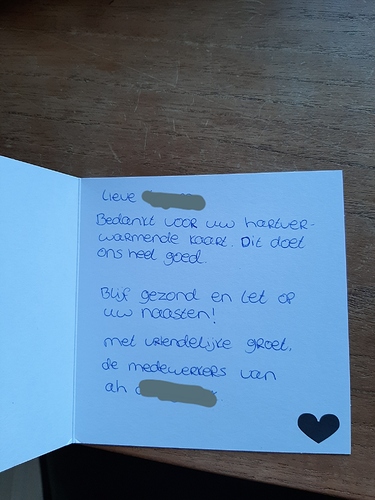 Lieve
Bedankt voor uw hartver-
warmende kaart. Dit doet
ons heel goed.
Blijf gezond en let op
uw naasten!
met vriendelijke groet,
de medewerkers van
ah